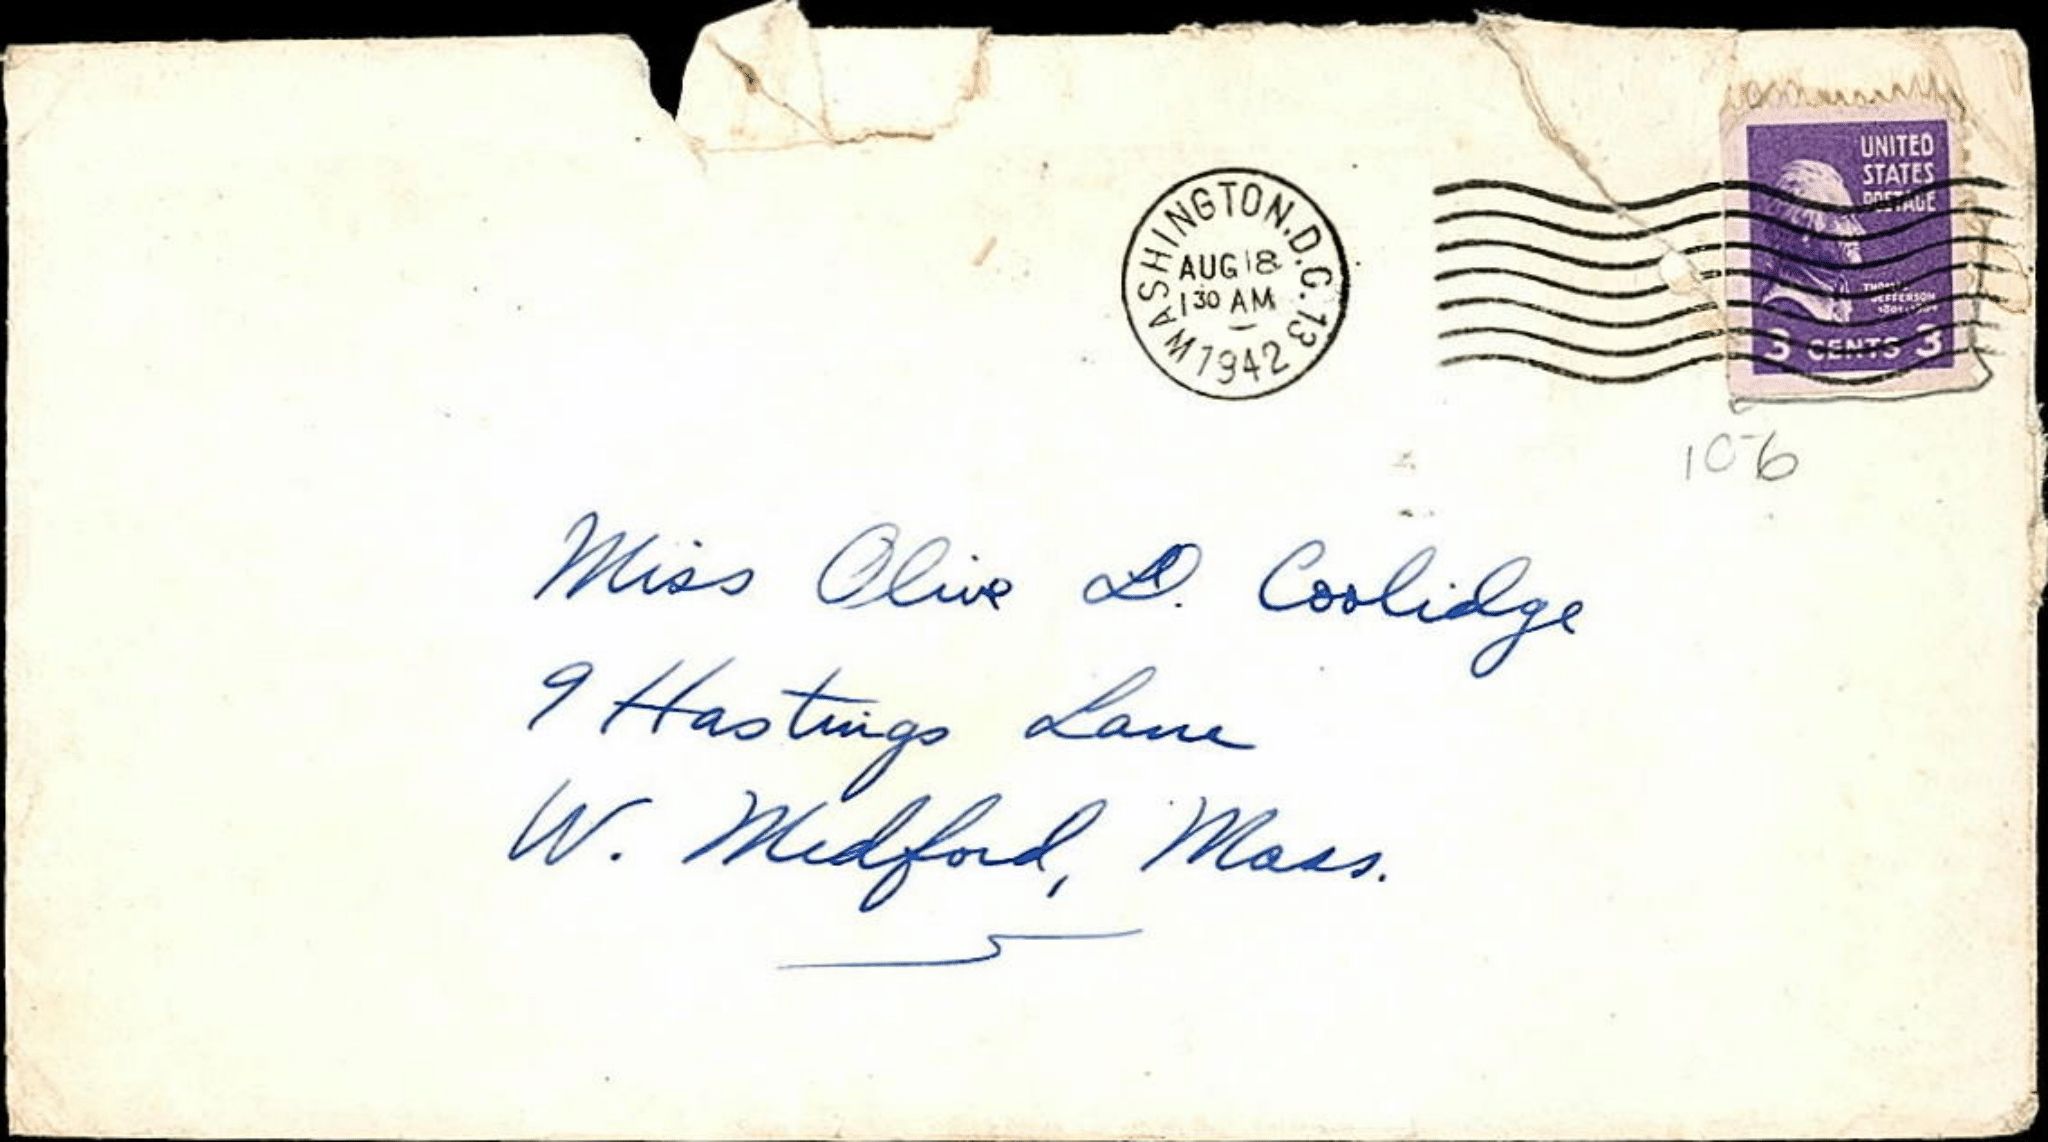 WASHINGTON, D.C. 13
AUG 18
1 30 AM
1942
UNITED
STATES
POSTAGE
THOMAS
JEFFERSON
3 CENTS 3
106
Miss Olive D. Coolidge
9 Hastings Lane
W. Medford, Mass.